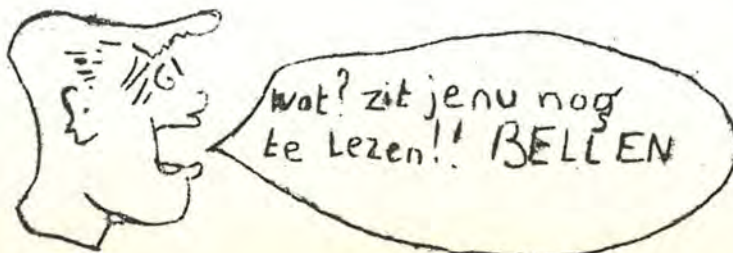 wat? zit je nu nog
te lezen!! BELLEN